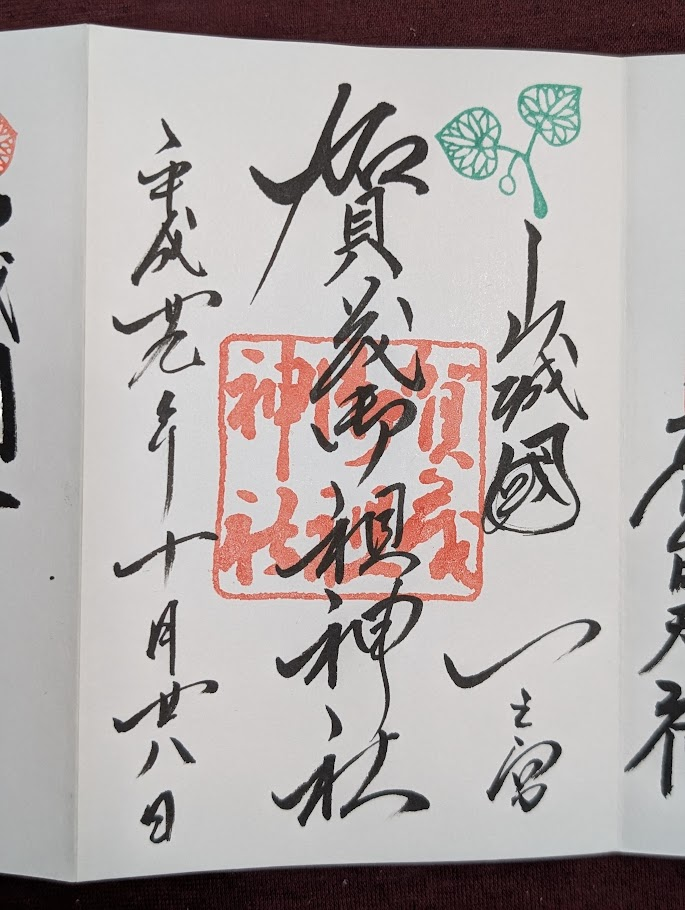 山城國 一之宮
賀茂御祖神社
平成廿九年十月廿八日
賀茂
御祖
神社